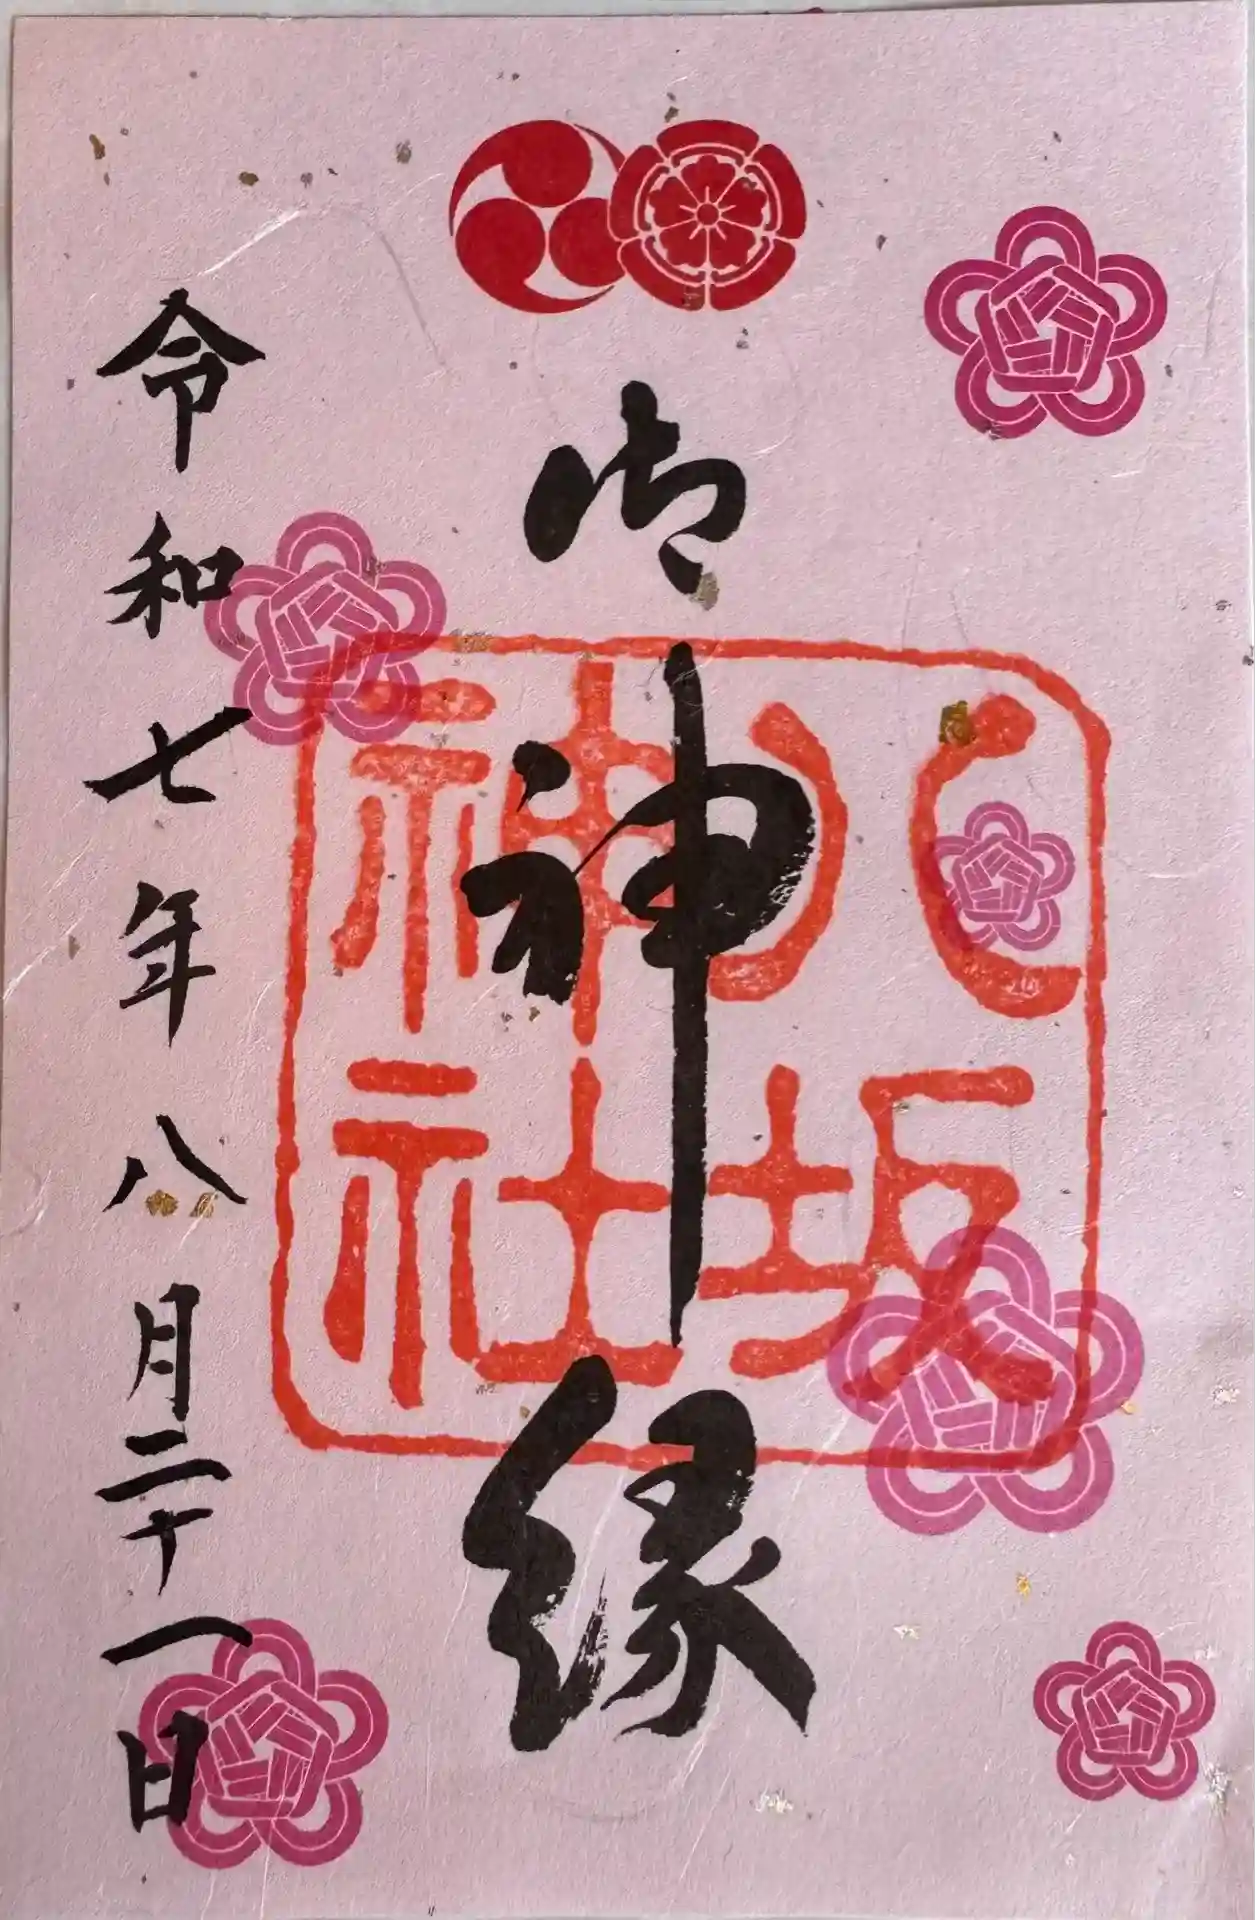 御神縁
八坂
神社
令和七年八月二十一日